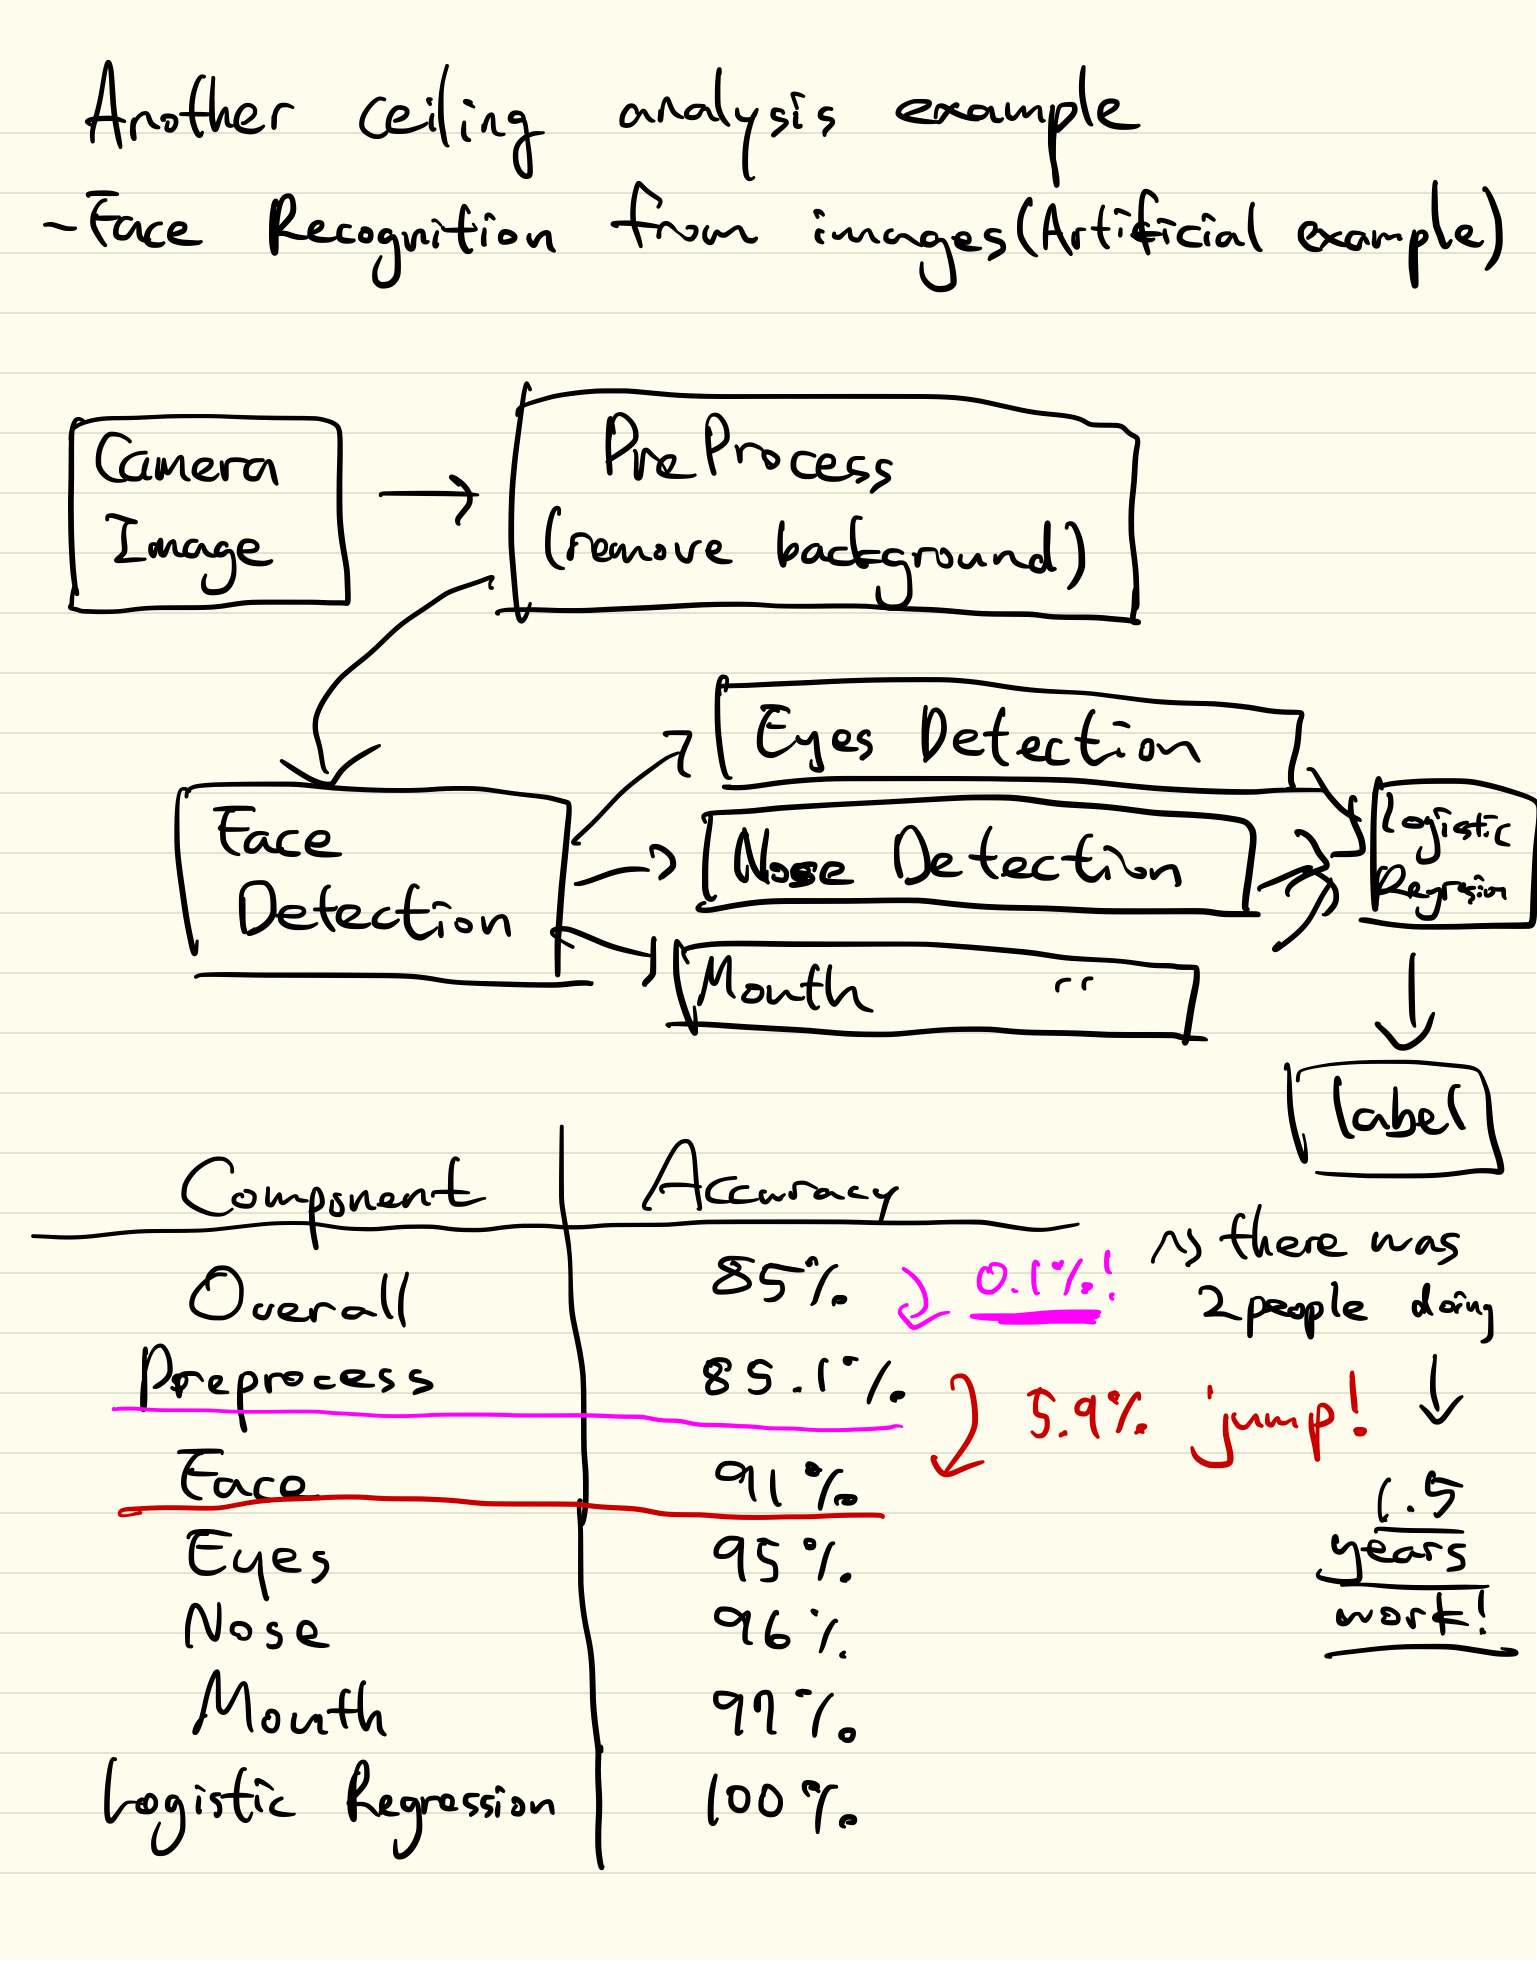 Another ceiling analysis example
- Face Recognition from images (Artificial example)
Camera
Image
PreProcess
(remove background)
Face
Detection
Eyes Detection
Nose Detection
Mouth 〃
Logistic
Regression
label
Component Accuracy
Overall 85%
0.1%!
Preprocess 85.1%
5.9% jump!
Face 91%
Eyes 95%
Nose 96%
Mouth 97%
Logistic Regression 100%
there was
2people doing
1.5
years
work!